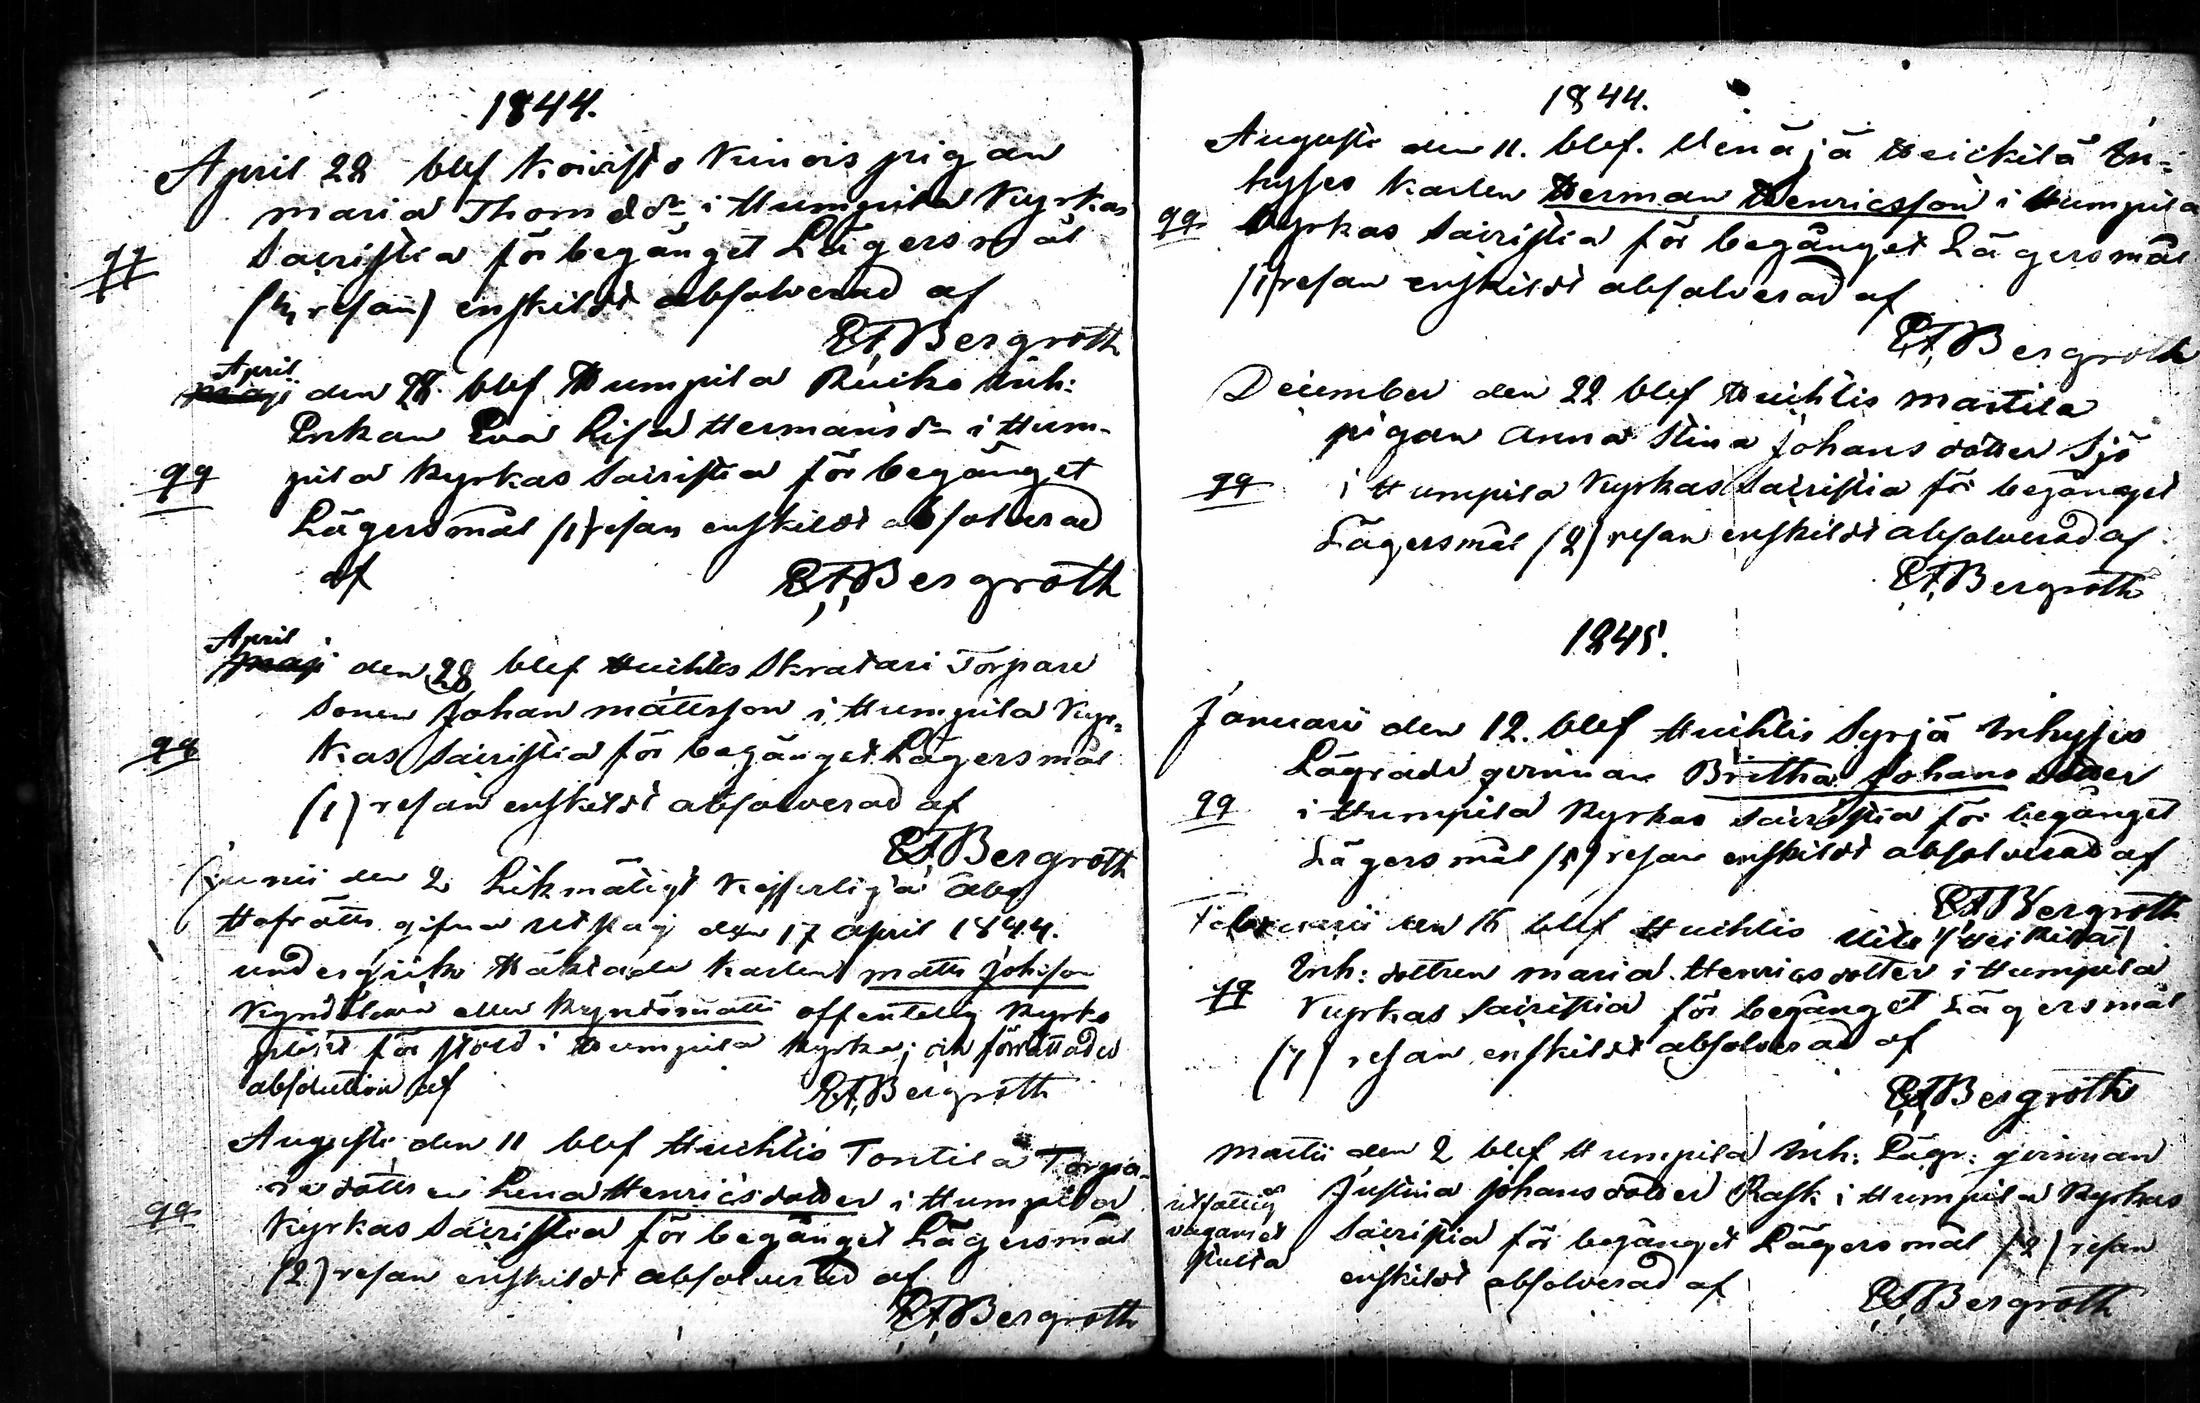 1844.
April 28 blef Koivisto Kunois pigan
Maria Thomæ dr i Humpila Kyrkas
Sacristia för begånget Lägersmål
(1) resan) enskildt absolverad af
EABergroth
April
Maji den 28 blef Humpila Ruiko Inh:
Enkan Eva Lisa Hermans dr i Hum-
pila Kyrkas Sacristia för begånget
Lägersmål (1) resan enskildt absolverad
af EABergroth
April
Maji den 28 blef Huihtis Skratari Torpare
Sonen Johan Mattsson i Humpila Kyr-
kas Sacristia för begånget Lägersmål
(1) resan enskildt absolverad af
EABergroth
Junii den 2 Likmätigt Kejserliga Åbo
Hofrätts gifna utslag den 17 April 1844.
undergick Häktade Karlen Matts Johsson
eller offentelig Kyrko
plikt för stöld i Humpila Kyrka; och förrättades
absolution af EABergroth
Augusti den 11 blef Huihtis Tontila Torpa-
redottren Lena Henricsdotter i Humpila
Kyrkas Sacristia för begånget Lägersmål
(2) resan enskildt absolverad af
EABergroth
1844.
Augusti den 11. blef. Wenäjä Heickilä In-
hyses Karlen Herman Henricsson i Humpila
Kyrkas Sacristia för begånget Lägersmål
(1) resan enskildt absolverad af
EABergroth
December den 22 blef Huihtis Martila
pigan Anna Stina Johans dotter Sjö
i Humpila Kyrkas Sacristia för begånget
Lägersmål (2) resan enskildt absolverad af
EABergroth
1845.
Januarii den 12. blef Huihtis Syrjä Inhyses
Lägrade qvinnan Britha Johans dotter
i Humpila Kyrkas Sacristia för begånget
Lägersmål resan enskildt absolverad af
EABergroth
Februarii den 16 blef Huihtis Uito (Heikkilä)
Inh: dottren Maria Henricsdotter i Humpila
Kyrkas Sacristia för begånget Lägersmål
(1) resan enskildt absolverad af
EABergroth
Martii den 2 blef Humpila Inh: Lägr: qvinnan
Justina Johansdotter Rask i Humpila Kyrkas
Sacristia för begånget Lägersmål (2) resan
enskildt absolverad af EABergroth